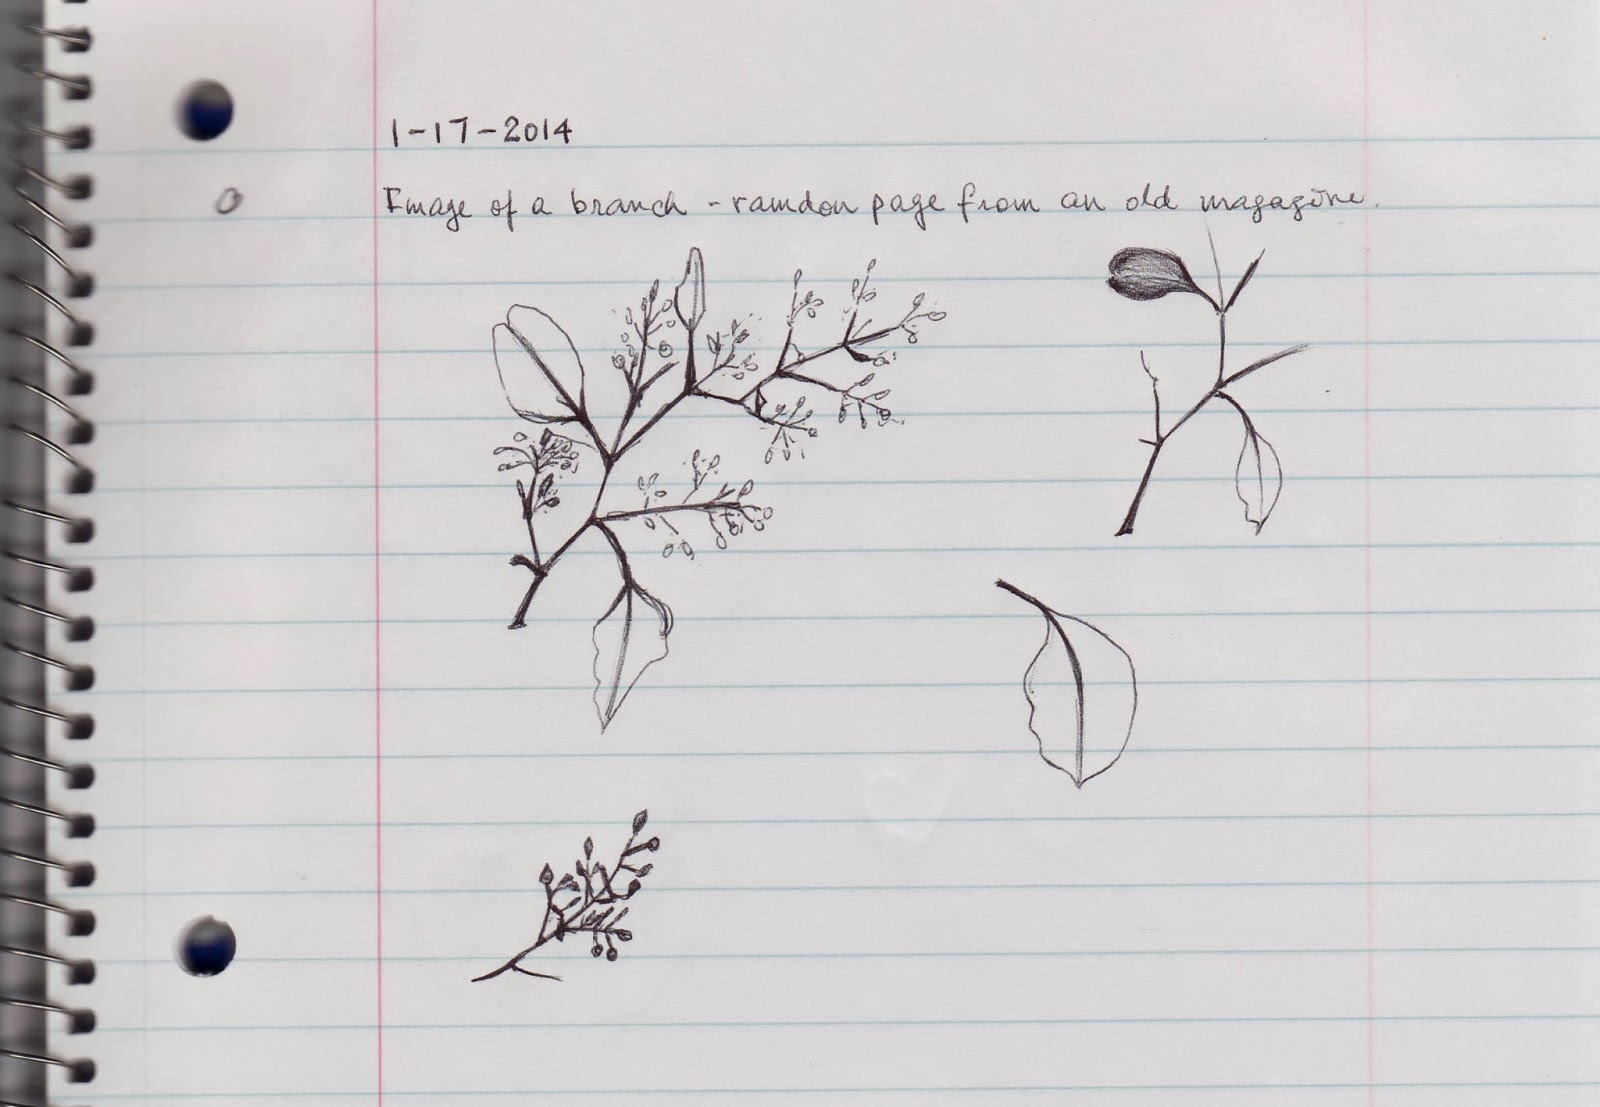 1-17-2014
Image of a branch - ramdon page from an old magazine.